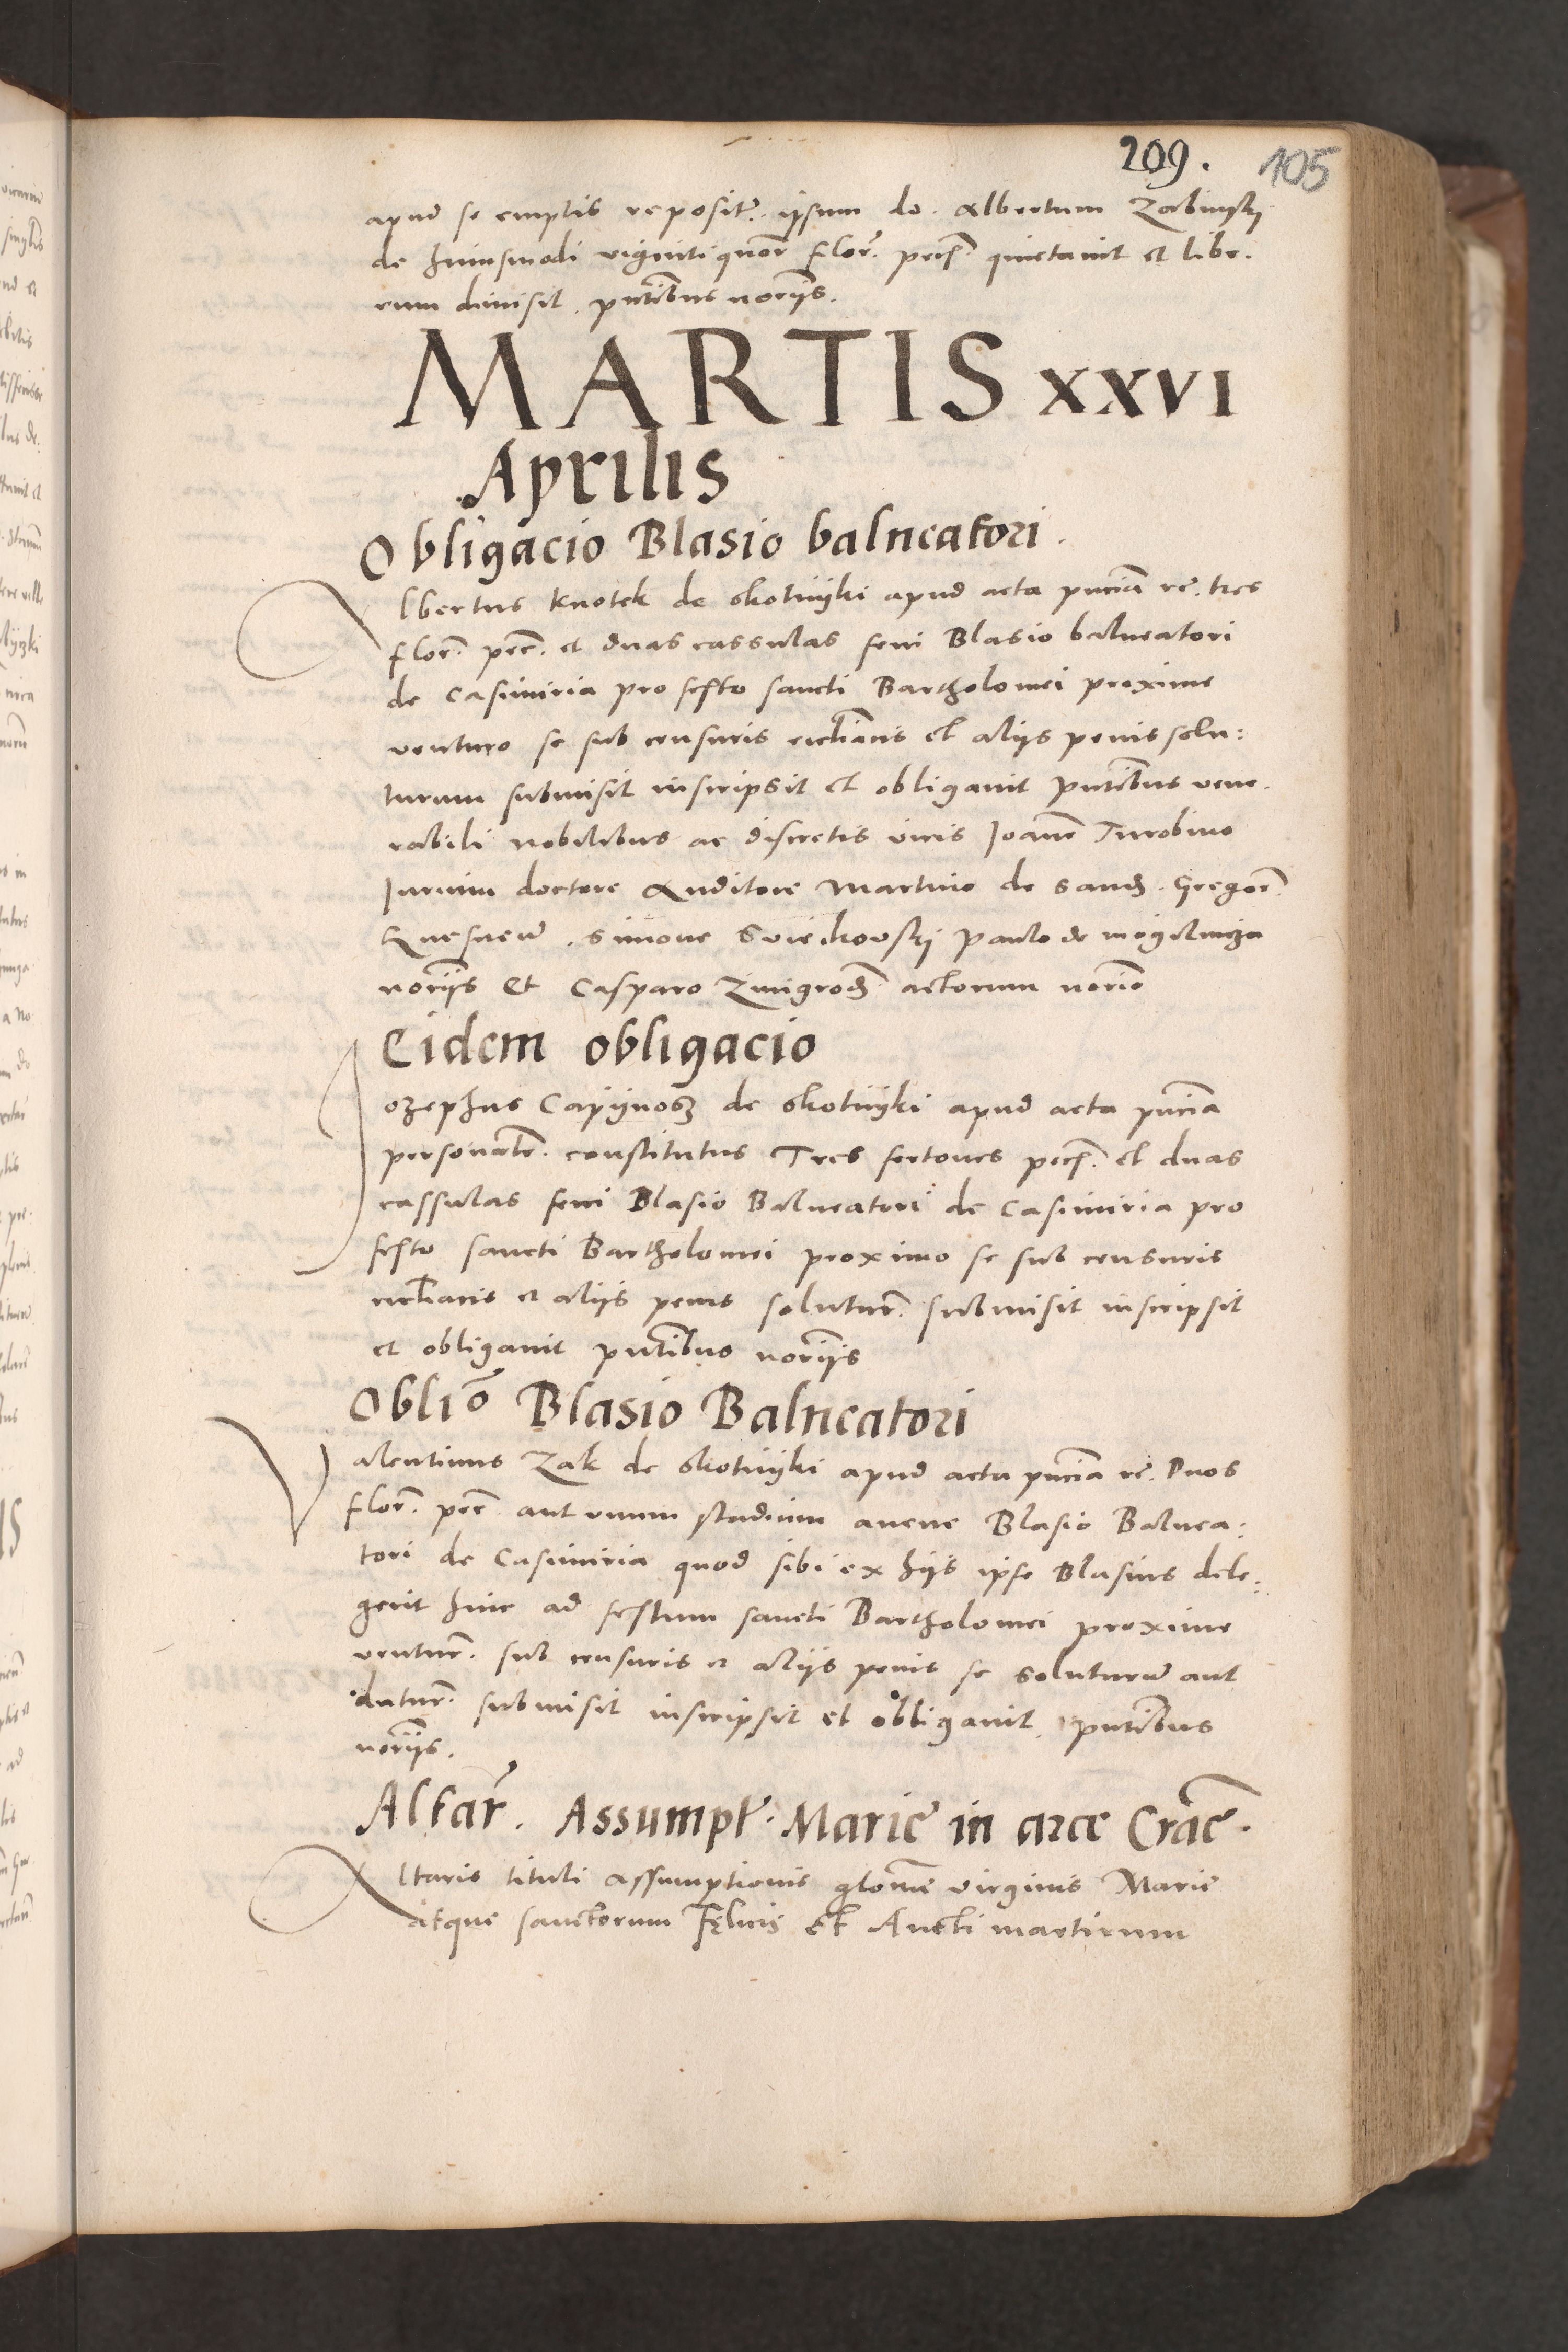 209. 105
apud se emptis reposit. ipsum do. Albertum Zabinsky
de huiusmodi vigintiquor flor. pecc. quietavit et libe.
rum dimisit. pntibus noriis.
MARTIS XXVI
Aprilis
Obligacio Blasio balneatori.
Albertus Knotek de Skotniki apud acta pncia re. tres
flor. pec. et duas cassulas feni Blasio balneatori
de Casimiria pro festo sancti Bartholomei proxime
venturo se sub censuris ecclianis et aliis penis solu:
turum submisit inscripsit et obligavit pntibus vene.
rabili nobilibus ac discretis viris Joanne Turobino
Jurium doctore Auditore Martino de Sand. Gregor.
Simone Paulo de mogilnicza
noriis et Casparo Zmigrod actorum norio
Eidem obligacio
Jozephus de Skotniki apud acta pncia
personalr. constitutus Tres fertones pecc. et duas
cassulas feni Blasio Balneatori de Casimiria pro
festo sancti Bartholomei proximo se sub censuris
et aliis penis solutur. submisit inscripsit
et obligavit pntibus noriis
Oblio Blasio Balneatori
Valentinus Zak de Skotniki apud acta pncia re. Duos
flor. pec. aut unum stadium avene Blasio Balnea:
tori de Casimiria quod sibi ex hiis ipse Blasius dele:
gerit hinc ad festum sancti Bartholomei proxime
ventur. sub censuris et aliis penis se soluturum aut
datur. submisit inscripsit et obligavit. pntibus
noriis.
Altar. Assumpt. Marie in arce Crac.
Altaris tituli assumptionis glose virginis Marie
atque sanctorum Felicis et Aucti martirum